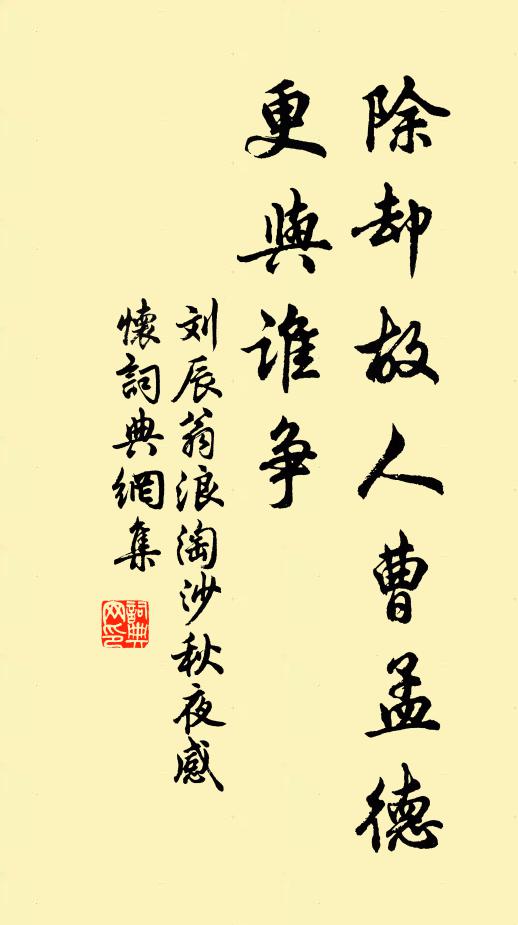 除却故人曹孟德
更與谁争
刘辰翁浪淘沙秋夜感
懷詞典網集
詞典
网印